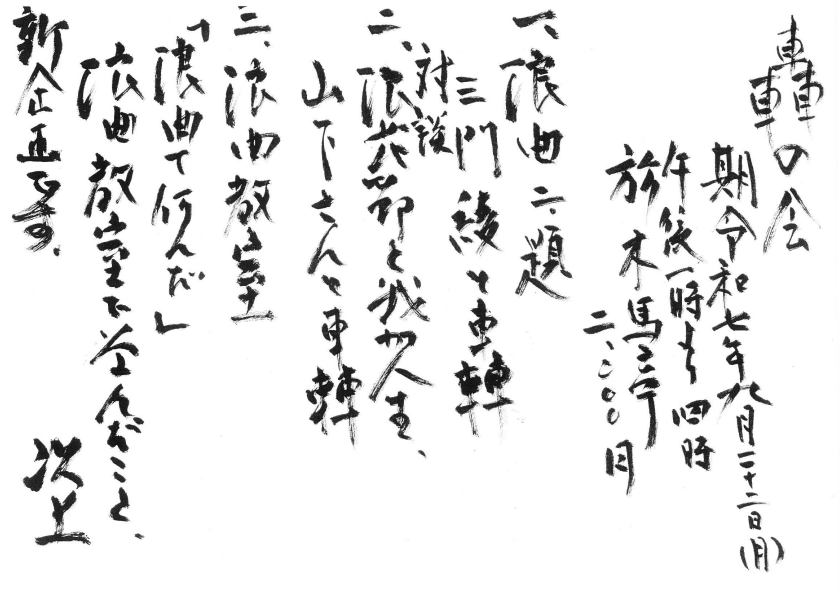 轟の会
期令和七年九月二十二日(月)
午後一時より四時
於木馬亭
二、〇〇〇円
一、浪曲二題
三門綾と車轉
二、対談
浪花節と我が人生、
山下さんと車轉
三、浪曲教室
「浪曲て何んだ」
浪曲教室で学んだこと、
新企画です。
以上